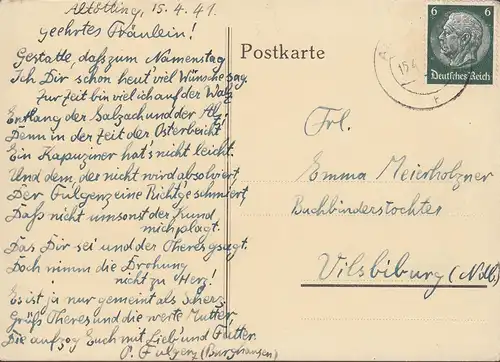 Altötting, 15.4.41.
Geehrtes Fräulein!
Gestatte, daß zum Namenstag
Ich Dir schon heut' viel Wünsche sag.
Zur Zeit bin viel ich auf der Walz
Entlang der Salzach und der Alz;
Denn in der Zeit der Osterbeicht
Ein Kapuziner hat's nicht leicht.
Und dem, der nicht wird absolviert,
Der Fulgenz eine Richt'ge schmiert,
Daß nicht umsonst der Kund
mich plagt.
Das Dir sei und der Theres gsagt.
Doch nimm die Drohung
nicht zu Herz!
Es ist ja nur gemeint als Scherz.
Grüß Theres und die werte Mutter,
Die aufzog Euch mit Lieb' und Futter.
P. Fulgenz (Burghausen)
Postkarte
6 6
Deutsches Reich
15.4
Frl.
Emma Meierholzner
Buchbinderstochter
Vilsbiburg (Ndb.)